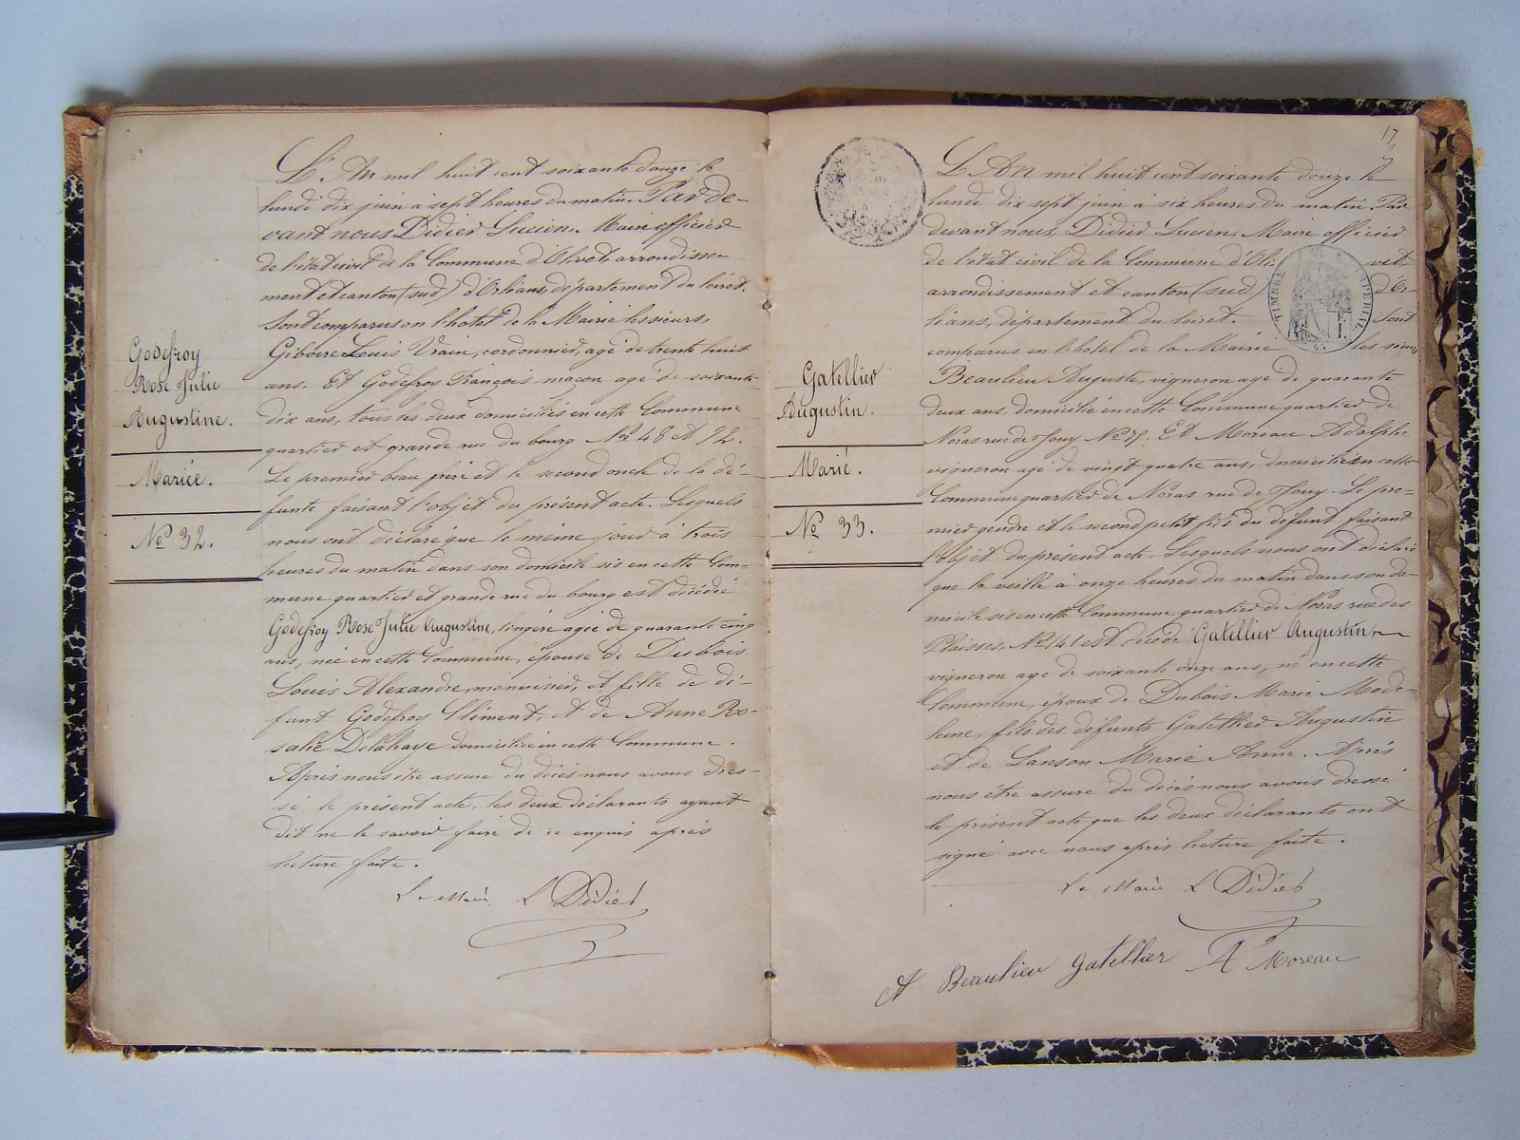 Godefroy
Rose Julie
Augustine.
Mariée.
No 32.
L'An mil huit cent soixante douze le
lundi dix juin à sept heures du matin. Par de-
vant nous Didier Lucien. Maire officier
de l'état civil de la Commune d'Olivet arrondisse-
ment et canton (sud) d'Orléans, département du Loiret.
Sont comparus en l'hotel de la Mairie les sieurs,
Giboire Louis Vrain, cordonnier, agé de trente huit
ans. Et Godefroy François, maçon agé de soixante
dix ans, tous les deux domiciliés en cette Commune
quartier et grande rue du bourg Nos 48 et 72.
Le premier beau frère et le second oncle de la dé-
funte faisant l'objet du présent acte. Lesquels
nous ont déclaré que le même jour à trois
heures du matin dans son domicile sis en cette Com-
mune quartier et grande rue du bourg est décédée
Godefroy Rose Julie Augustine, lingère agée de quarante cinq
ans, née en cette Commune, épouse de Dubois
Louis Alexandre, menuisier, et fille de dé-
funt Godefroy Clément, et de Anne Ro-
salie Delahaye domiciliée en cette Commune.
Après nous être assuré du décès nous avons dres-
sé le présent acte, les deux déclarants ayant
dit ne le savoir faire de ce enquis après
lecture faite.
Le Maire L Didier
17
Gatellier
Augustin.
Marié.
No 33.
L'An mil huit cent soixante douze le
lundi dix sept juin à six heures du matin Par
devant nous, Didier Lucien Maire officier
de l'état civil de la Commune d'Olivet
arrondissement et canton (sud) d'Or-
léans, département du Loiret. Sont
comparus en l'hotel de la Mairie les sieurs
Beaulieu Auguste, vigneron agé de quarante
deux ans domicilié en cette Commune quartier de
Noras rue de Jouy No 27. Et Moreau Adolphe
vigneron agé de vingt quatre ans, domicilié en cette
Commune quartier de Noras rue de Jouy. Le pre-
mier gendre et le second petit fils du défunt faisant
l'objet du présent acte. Lesquels nous ont déclaré
que la veille à onze heures du matin dans son do-
micile sis en cette Commune quartier de Noras rue des
Plaisses, No 141 est décédé Gatellier Augustin,
vigneron agé de soixante onze ans, né en cette
Commune, époux de Dubois Marie Made-
leine, fils des défunts Gatellier Augustin
et de Sanson Marie Anne. Après
nous être assuré du décès nous avons dressé
le présent acte que les deux déclarants ont
signé avec nous après lecture faite.
Le Maire L Didier
A Beaulieu gatellier A Moreau
TIMBRE IMPÉRIAL